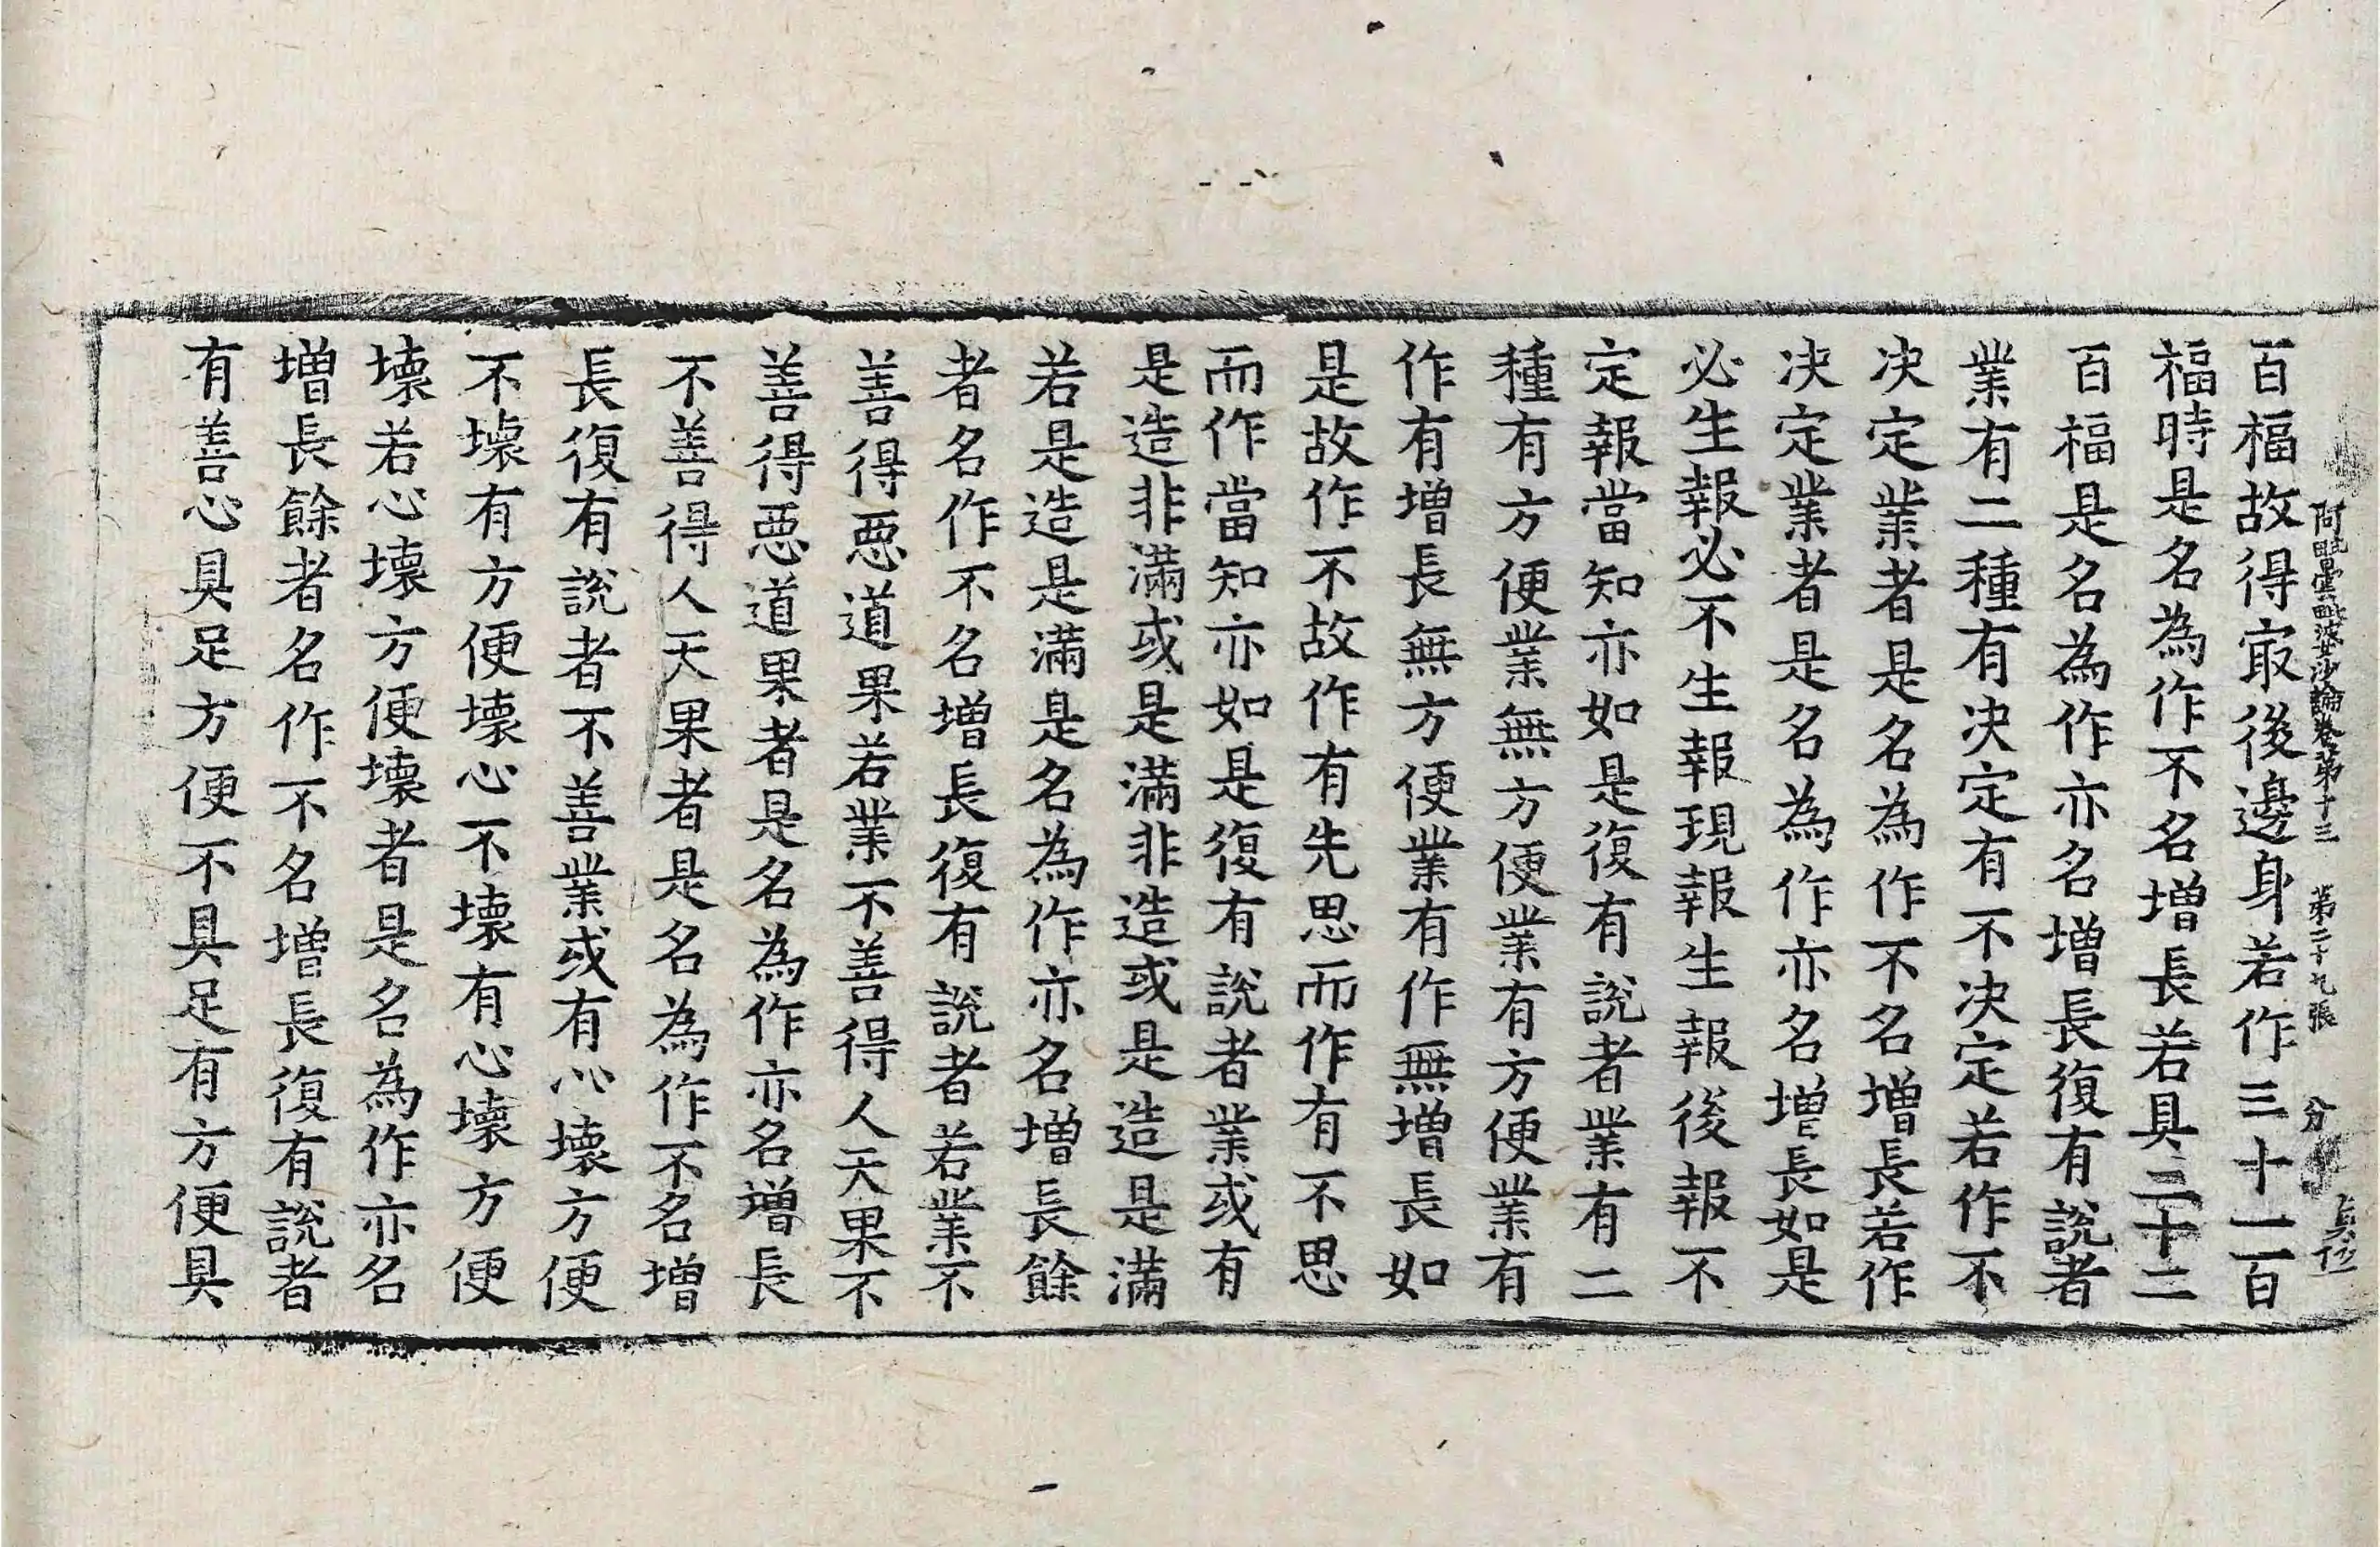 阿毗曇毗婆沙論卷第十三　第二十九張　分
百福故得㝡後邊身若作三十一百
福時是名為作不名增長若具三十二
百福是名為作亦名增長復有說者
業有二種有决定有不决定若作不
决定業者是名為作不名增長若作
决定業者是名為作亦名增長如是
必生報必不生報現報生報後報不
定報當知亦如是復有說者業有二
種有方便業無方便業有方便業有
作有增長無方便業有作無增長如
是故作不故作有先思而作有不思
而作當知亦如是復有說者業或有
是造非滿或是滿非造或是造是滿
若是造是滿是名為作亦名增長餘
者名作不名增長復有說者若業不
善得惡道果若業不善得人天果不
善得惡道果者是名為作亦名增長
不善得人天果者是名為作不名增
長復有說者不善業或有心壞方便
不壞有方便壞心不壞有心壞方便
壞若心壞方便壞者是名為作亦名
增長餘者名作不名增長復有說者
有善心具足方便不具足有方便具